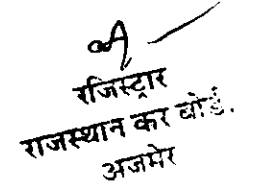 रजिस्ट्रार
राजस्थान कर बोर्ड.
अजमेर